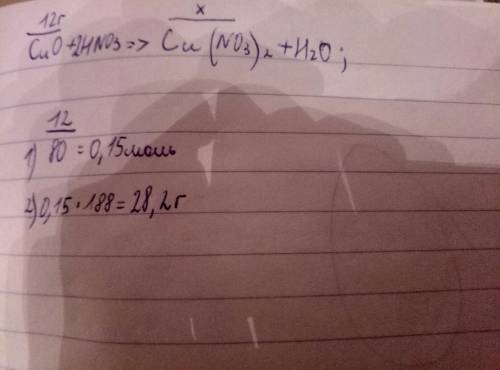 12г x
CuO + 2HNO3 => Cu(NO3)2 + H2O;
1) 12/80 = 0,15моль
2) 0,15 · 188 = 28,2г